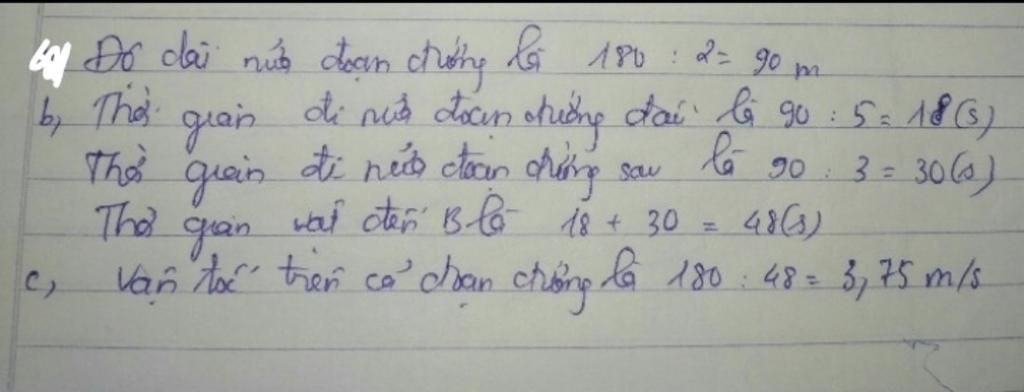 a, Độ dài nửa đoạn đường là 180 : 2 = 90 m
b, Thời gian đi nửa đoạn đường đầu là 90 : 5 = 18 (s)
Thời gian đi nửa đoạn đường sau là 90 : 3 = 30 (s)
Thời gian vật đến B là 18 + 30 = 48 (s)
c, Vận tốc trên cả đoạn đường là 180 : 48 = 3,75 m/s